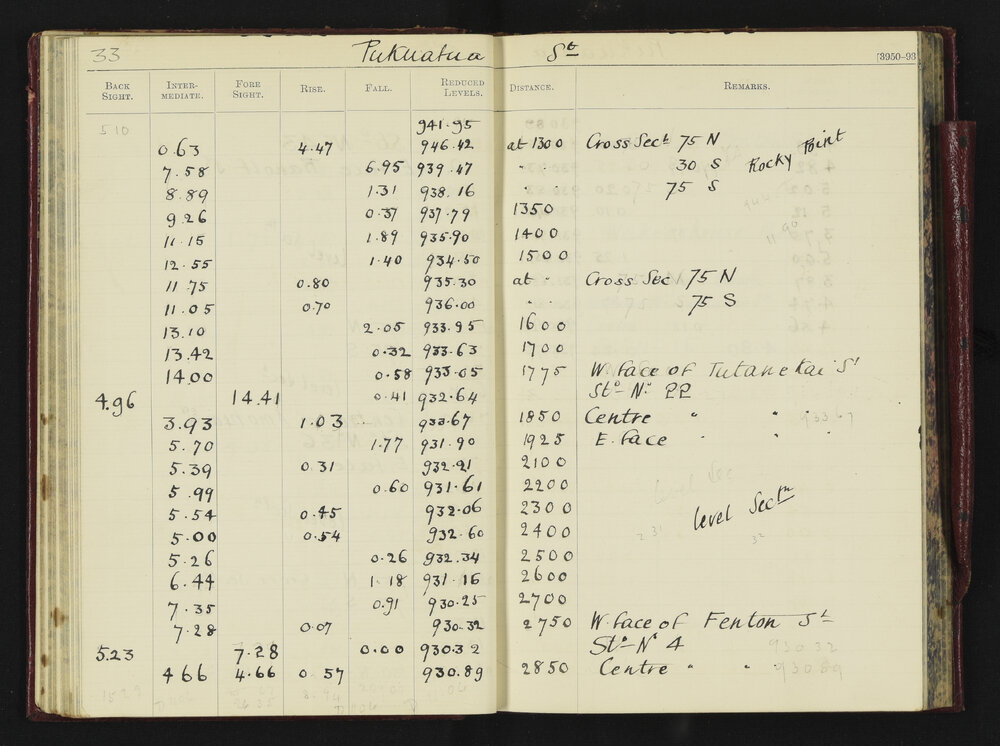 33 Pukuatua St [3950-93
BACK SIGHT. INTER-MEDIATE. FORE SIGHT. RISE. FALL. REDUCED LEVELS. DISTANCE. REMARKS.
5 10 941.95
0.63 4.47 946.42 at 1300 Cross Sect 75 N
7.58 6.95 939.47 " 30 S Rocky Point
8.89 1.31 938.16 " " 75 S
9.26 0.37 937.79 1350
11.15 1.89 935.90 1400
12.55 1.40 934.50 1500
11.75 0.80 935.30 at " Cross Sec 75 N
11.05 0.70 936.00 " " 75 S
13.10 2.05 933.95 1600
13.42 0.32 933.63 1700
14.00 0.58 933.05 1775 W. face of Tutanekai St
4.96 14.41 0.41 932.64 Stn No 22
3.93 1.03 933.67 1850 Centre " " " 933.67
5.70 1.77 931.90 1925 E. face " " "
5.39 0.31 932.21 2100
5.99 0.60 931.61 2200
5.54 0.45 932.06 2300 level Sectn
5.00 0.54 932.60 2400
5.26 0.26 932.34 2500
6.44 1.18 931.16 2600
7.35 0.91 930.25 2700
7.28 0.07 930.32 2750 W. face of Fenton St
5.23 7.28 0.00 930.32 Stn No 4 930 32
4 66 4.66 0.57 930.89 2850 Centre " " 930 89